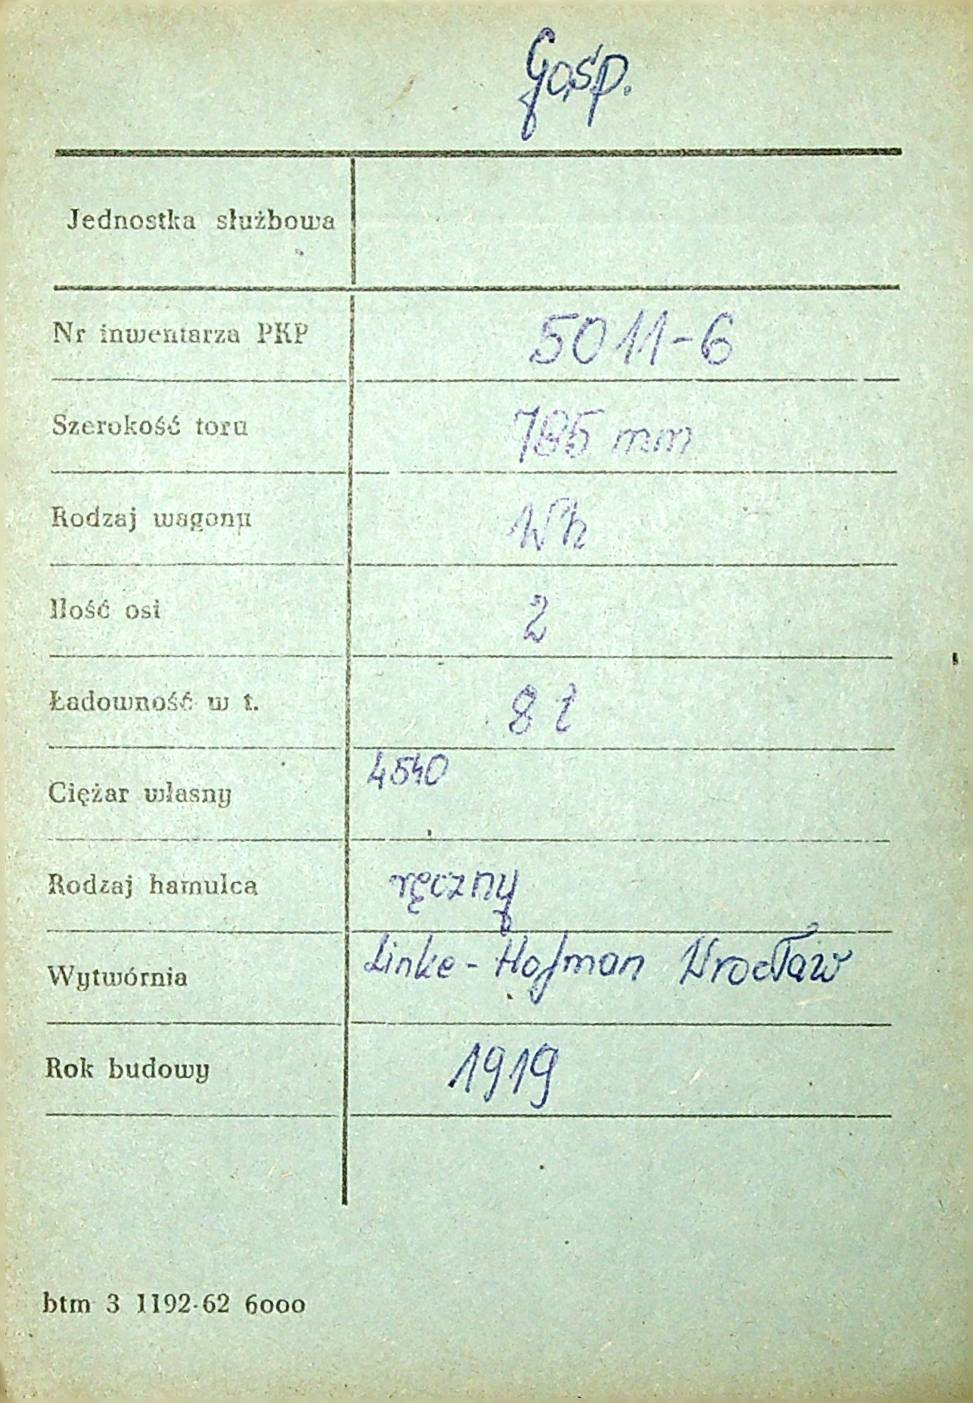 Gosp.
Jednostka służbowa
Nr inwentarza PKP 5011-6
Szerokość toru 785 mm
Rodzaj wagonu Wh
Ilość osi 2
Ładowność w t. 8 t
Ciężar własny 4540
Rodzaj hamulca ręczny
Wytwórnia Linke-Hofman Wrocław
Rok budowy 1919
btm 3 1192-62 6000